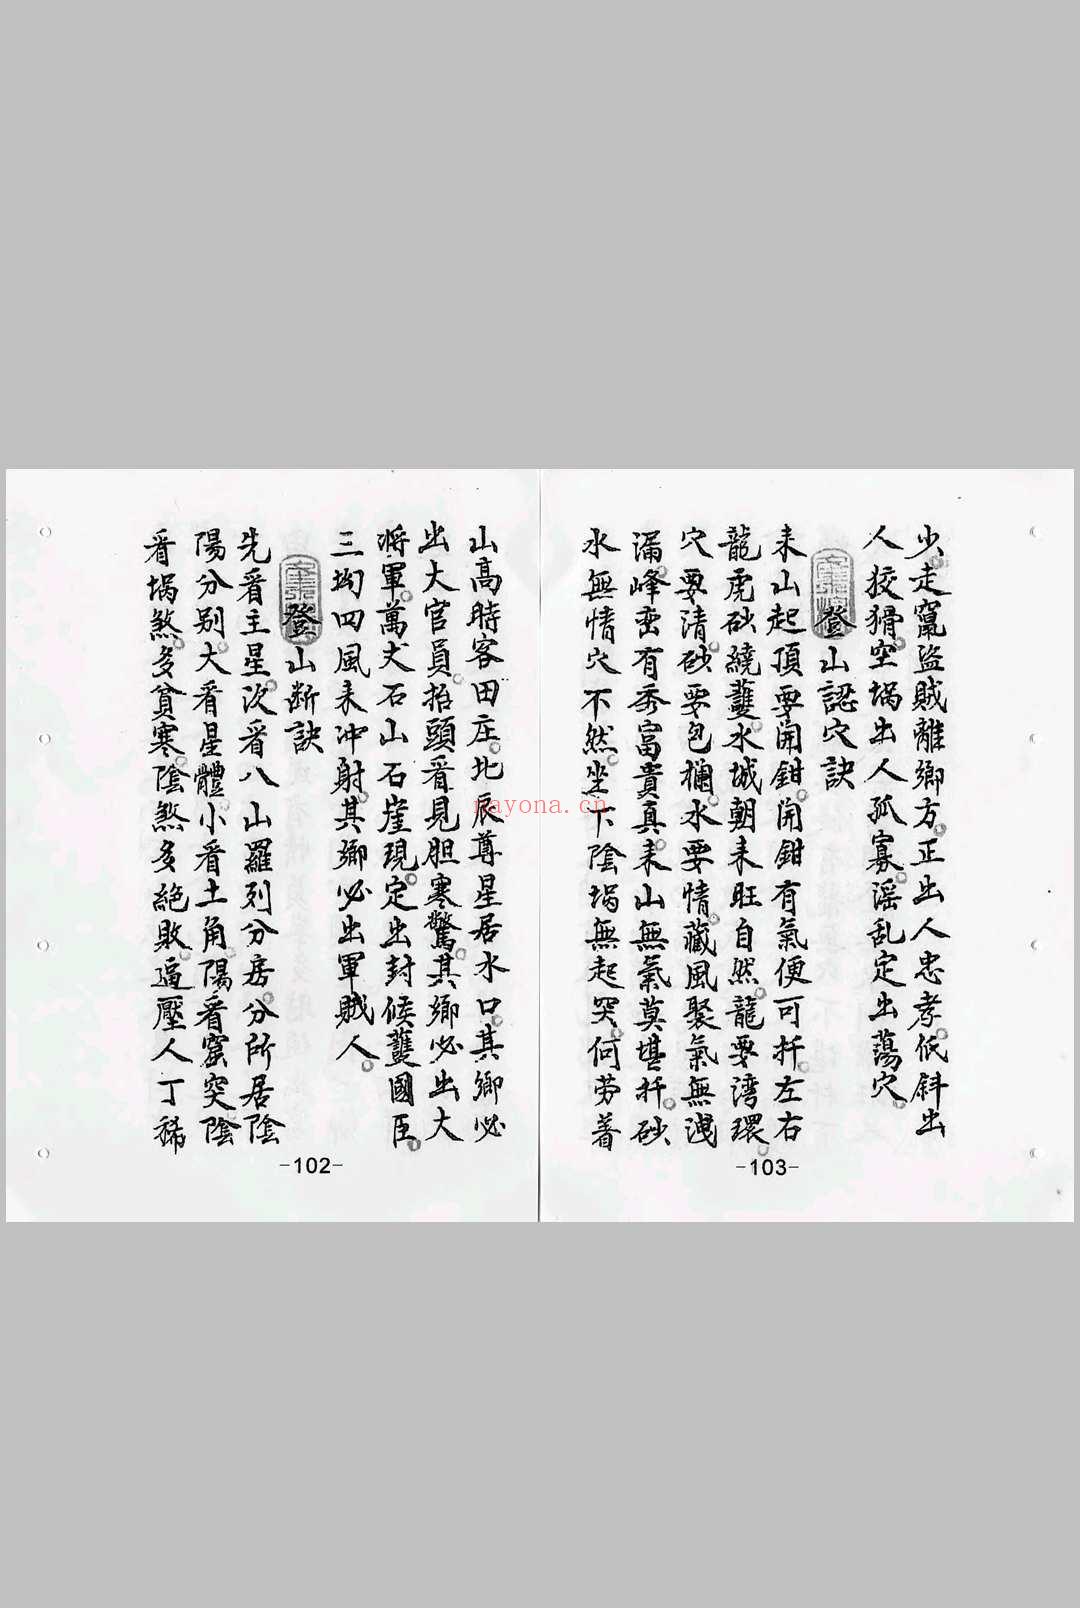 山高時客田庄。北辰尊星居水口。其鄉必
出大官員。抬頭看見胆寒驚。其鄉必出大
將軍。萬丈石山石崖現。定出封候護國臣。
三坳四風耒冲射。其鄉必出軍賊人。
登山断訣
先看主星。次看八山羅列分房。分所居陰
陽分别。大看星體。小看土角。陽看窟突陰
看堝煞。多貧寒。陰煞多絕敗。逼壓人丁稀
-102-
少。走竄盜賊離鄉方。正出人忠孝。低斜出
人狡猾。空堝出人孤寡。滛乱定出蕩穴。
登山認穴訣
耒山起頂要開鉗。開鉗有氣便可扦。左右
龍虎砂繞護。水城朝耒旺自然。龍要湾環。
穴要清。砂要包欄。水要情。藏風聚氣無洩
漏。峰峦有秀富貴真。耒山無氣莫堪扦。砂
水無情穴不然。坐下陰堝無起突。何劳着
-103-
nayona.cn